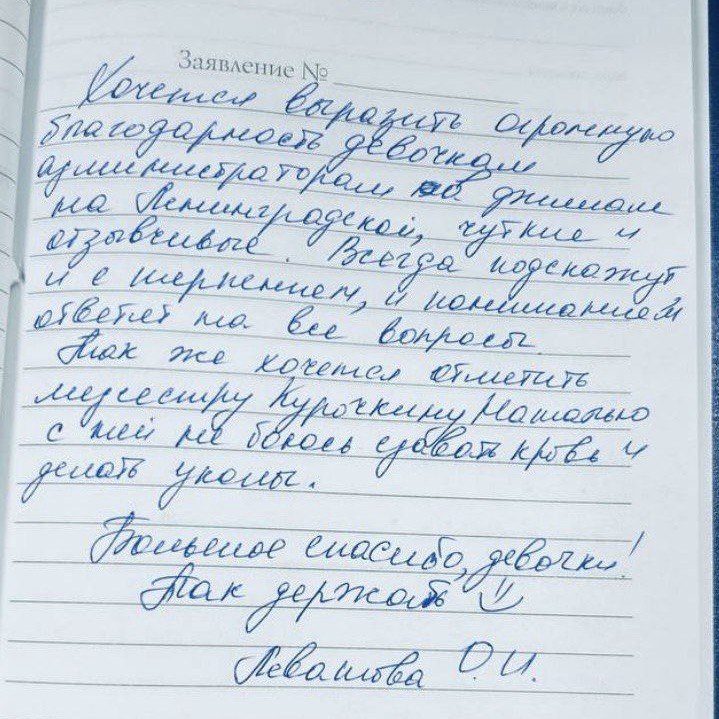 Заявление №
Хочется выразить огромную
благодарность девочкам
администраторам в
на Ленинградской, чуткие и
отзывчивые. Всегда подскажут
и с терпением, и пониманием
ответят на все вопросы.
Так же хочется отметить
медсестру Курочкину Наталью
с ней не боюсь сдавать кровь и
делать уколы.
Большое спасибо, девочки!
Так держать
Левашова О.И.